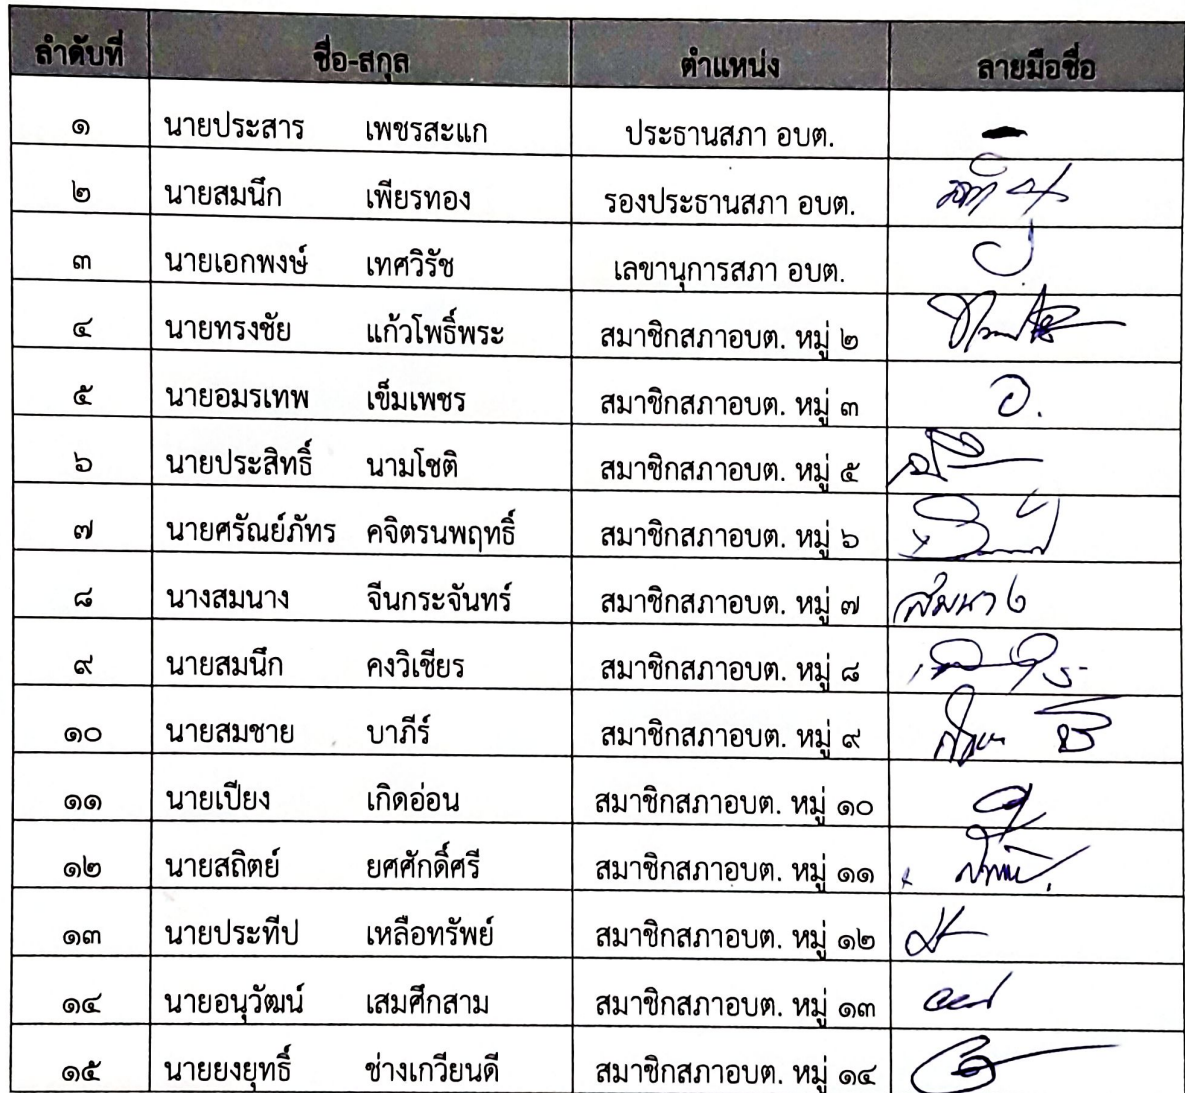 ลำดับที่ ชื่อ-สกุล ตำแหน่ง ลายมือชื่อ
๑ นายประสาร เพชรสะแก ประธานสภา อบต.
๒ นายสมนึก เพียรทอง รองประธานสภา อบต.
๓ นายเอกพงษ์ เทศวิรัช เลขานุการสภา อบต.
๔ นายทรงชัย แก้วโพธิ์พระ สมาชิกสภาอบต. หมู่ ๒
๕ นายอมรเทพ เข็มเพชร สมาชิกสภาอบต. หมู่ ๓ อ.
๖ นายประสิทธิ์ นามโชติ สมาชิกสภาอบต. หมู่ ๕
๗ นายศรัณย์ภัทร คจิตรนพฤทธิ์ สมาชิกสภาอบต. หมู่ ๖
๘ นางสมนาง จีนกระจันทร์ สมาชิกสภาอบต. หมู่ ๗ สมนาง
๙ นายสมนึก คงวิเชียร สมาชิกสภาอบต. หมู่ ๘
๑๐ นายสมชาย บาภีร์ สมาชิกสภาอบต. หมู่ ๙
๑๑ นายเปียง เกิดอ่อน สมาชิกสภาอบต. หมู่ ๑๐
๑๒ นายสถิตย์ ยศศักดิ์ศรี สมาชิกสภาอบต. หมู่ ๑๑
๑๓ นายประทีป เหลือทรัพย์ สมาชิกสภาอบต. หมู่ ๑๒
๑๔ นายอนุวัฒน์ เสมศึกสาม สมาชิกสภาอบต. หมู่ ๑๓
๑๕ นายยงยุทธิ์ ช่างเกวียนดี สมาชิกสภาอบต. หมู่ ๑๔